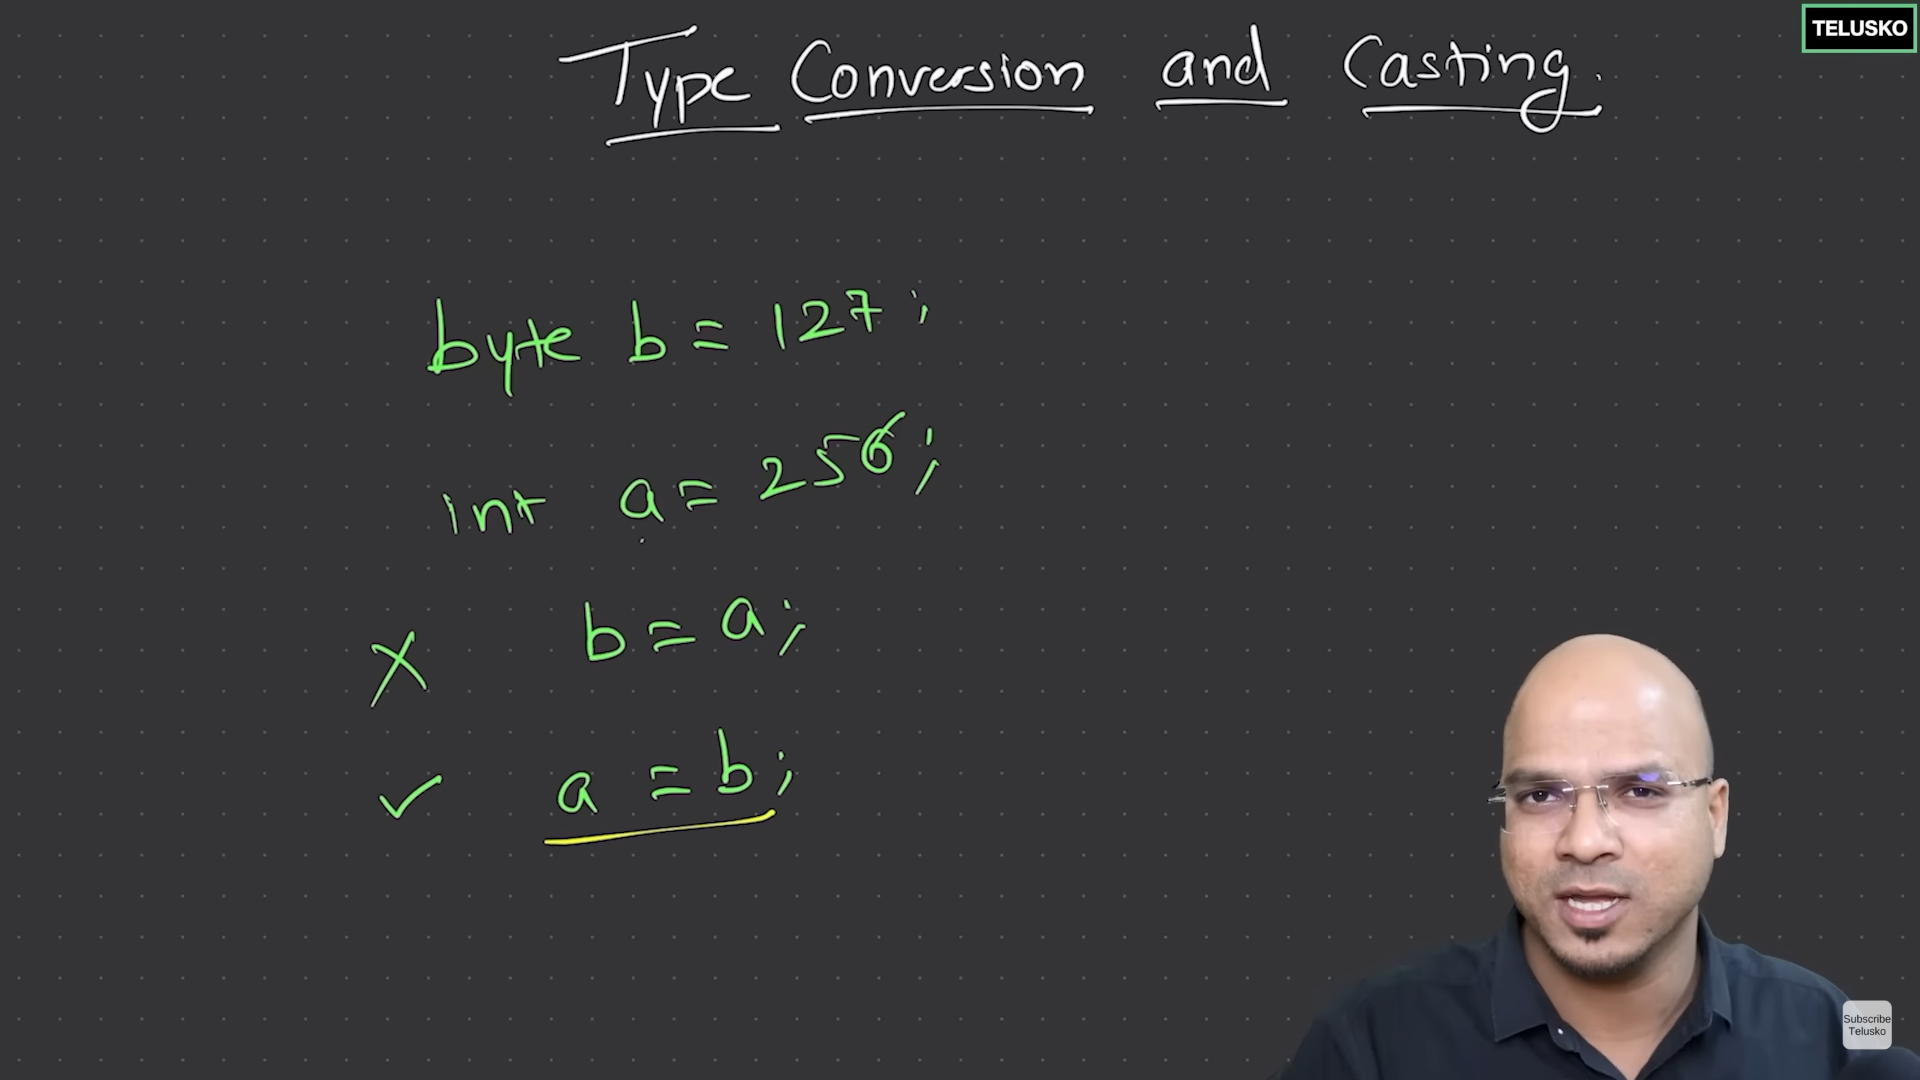 TELUSKO
Type Conversion and Casting.
byte b = 127;
int a = 256;
X b = a;
✓ a = b;
Subscribe
Telusko